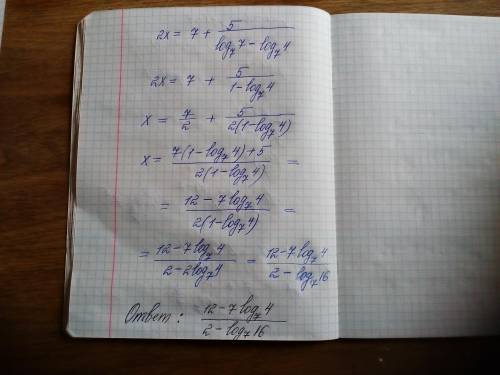 2x = 7 + 5/(log₇7 − log₇4)
2x = 7 + 5/(1 − log₇4)
x = 7/2 + 5/(2(1 − log₇4))
x = (7(1 − log₇4) + 5)/(2(1 − log₇4)) =
= (12 − 7log₇4)/(2(1 − log₇4)) =
= (12 − 7log₇4)/(2 − 2log₇4) = (12 − 7log₇4)/(2 − log₇16)
Ответ: (12 − 7log₇4)/(2 − log₇16)